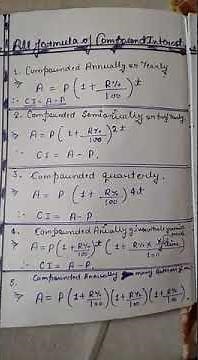 All formula of Compound Interest
1. Compounded Annually or Yearly
⇒ A = P (1 + R%/100)^t
∴ CI = A - P
2. Compounded Semianually or half yearly
⇒ A = P (1 + R%/100)^2t
∴ CI = A - P.
3. Compounded quarterly.
⇒ A = P (1 + R%/100)^4t
∴ CI = A - P.
4. Compounded Anually given
⇒ A = P (1 + R%/100)^t (1 + R% x /100)
∴ CI = A - P.
5. Compounded Annually many
⇒ A = P (1 + R%/100) (1 + R%/100) (1 + R%/100).